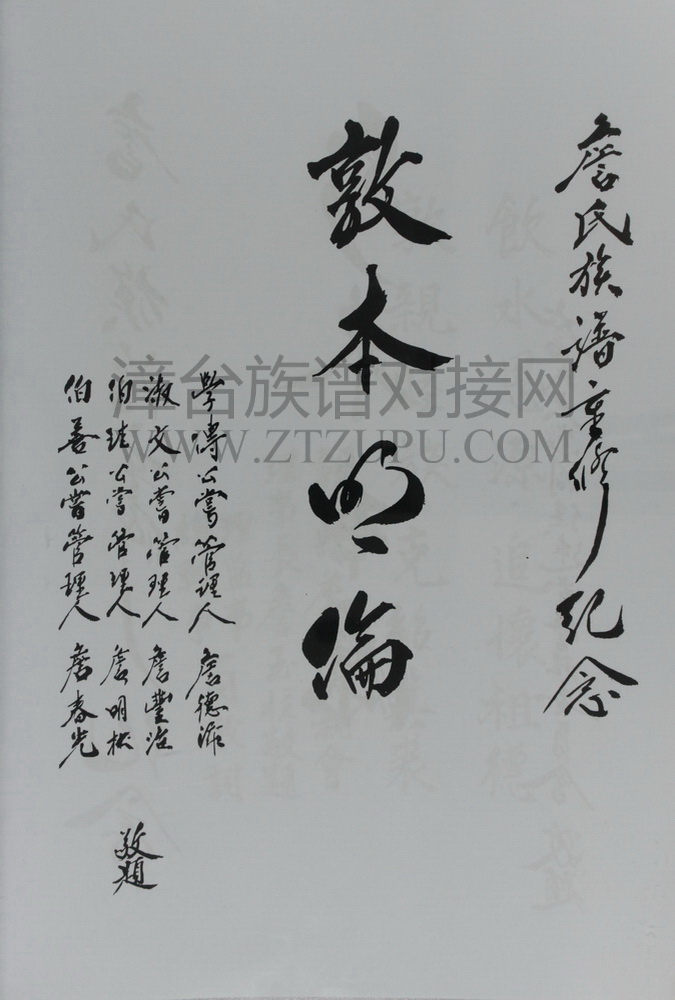 詹氏族譜重修紀念
敦本明倫
學傳公嘗管理人 詹德
淑文公嘗管理人 詹豐
伯 公嘗管理人 詹明松
伯善公嘗管理人 詹春光
敬題
漳台族谱对接网
WWW.ZTZUPU.COM